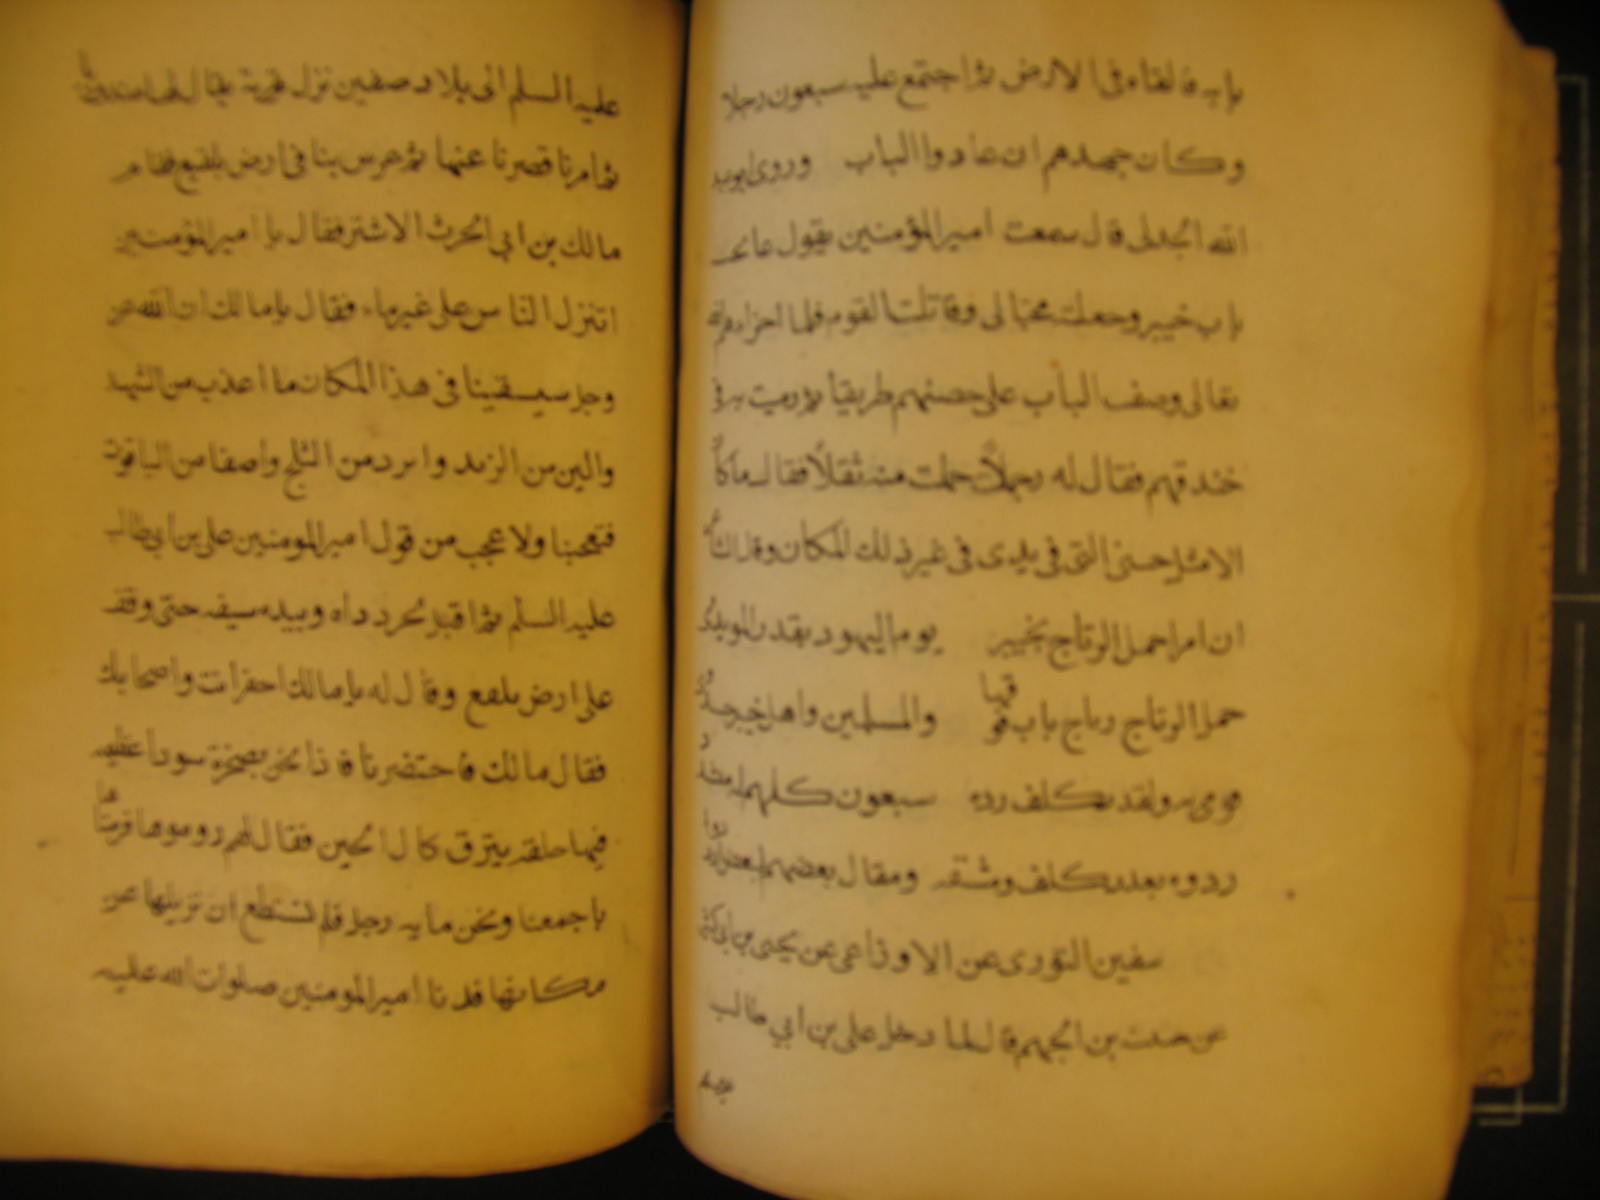 بابه فالقاه في الارض ثم اجتمع عليه سبعون رجلا
وكان جهدهم ان عادوا الباب وروى ابو عبد
الله الجدلي قال سمعت امير المؤمنين يقول عالجت
باب خيبر وجعلته مجنا لي وقاتلت القوم فلما اخزاهم الله
تعالى وضعت الباب على حصنهم طريقا ثم رميت به في
خندقهم فقال له رجل حملت منه ثقلا فقال ما كان
الا مثل جنتي التي في يدي في غير ذلك المكان وقال الشاعر
ان امرا حمل الرتاج بخيبر يوم اليهود بقدرة لمويد
حمل الرتاج رتاج باب قموصها والمسلمين واهل خيبر
فرمى به ولقد تكلف رده سبعون كلهم له
ردوه بعد تكلف ومشقة ومقال بعضهم لبعض ارددوا
سفين الثوري عن الاوزاعي عن يحيى بن ابي كثير
عن بن الجهم قال لما دخل علي بن ابي طالب
عليه السلم الى بلاد صفين نزل قرية يقال لها صندوديا
ثم امرنا فصرنا عنها ثم عرس بنا في ارض بلقع فقام
مالك بن ابي الحرث الاشتر فقال يا امير المؤمنين
اتنزل الناس على غير ماء فقال يا مالك ان الله عز
وجل سيسقينا في هذا المكان ماا عذب من الشهد
والين من الزبد وابرد من الثلج واصفا من الياقوت
فتعجبنا ولا عجب من قول امير المومنين علي بن ابي طالب
عليه السلم ثم اقبل يجر رداه وبيده سيفه حتى وقف
على ارض بلقع وقال له يا مالك احفر انت واصحابك
فقال مالك فاحتفرنا فاذا نحن بصخرة سودا عظيمه
فيها حلقه تبرق كاللجين فقال لهم روموها فرمناها
باجمعنا ونحن مايه رجل فلم نستطع ان نزيلها عن
مكانها فدنا امير المومنين صلوات الله عليه